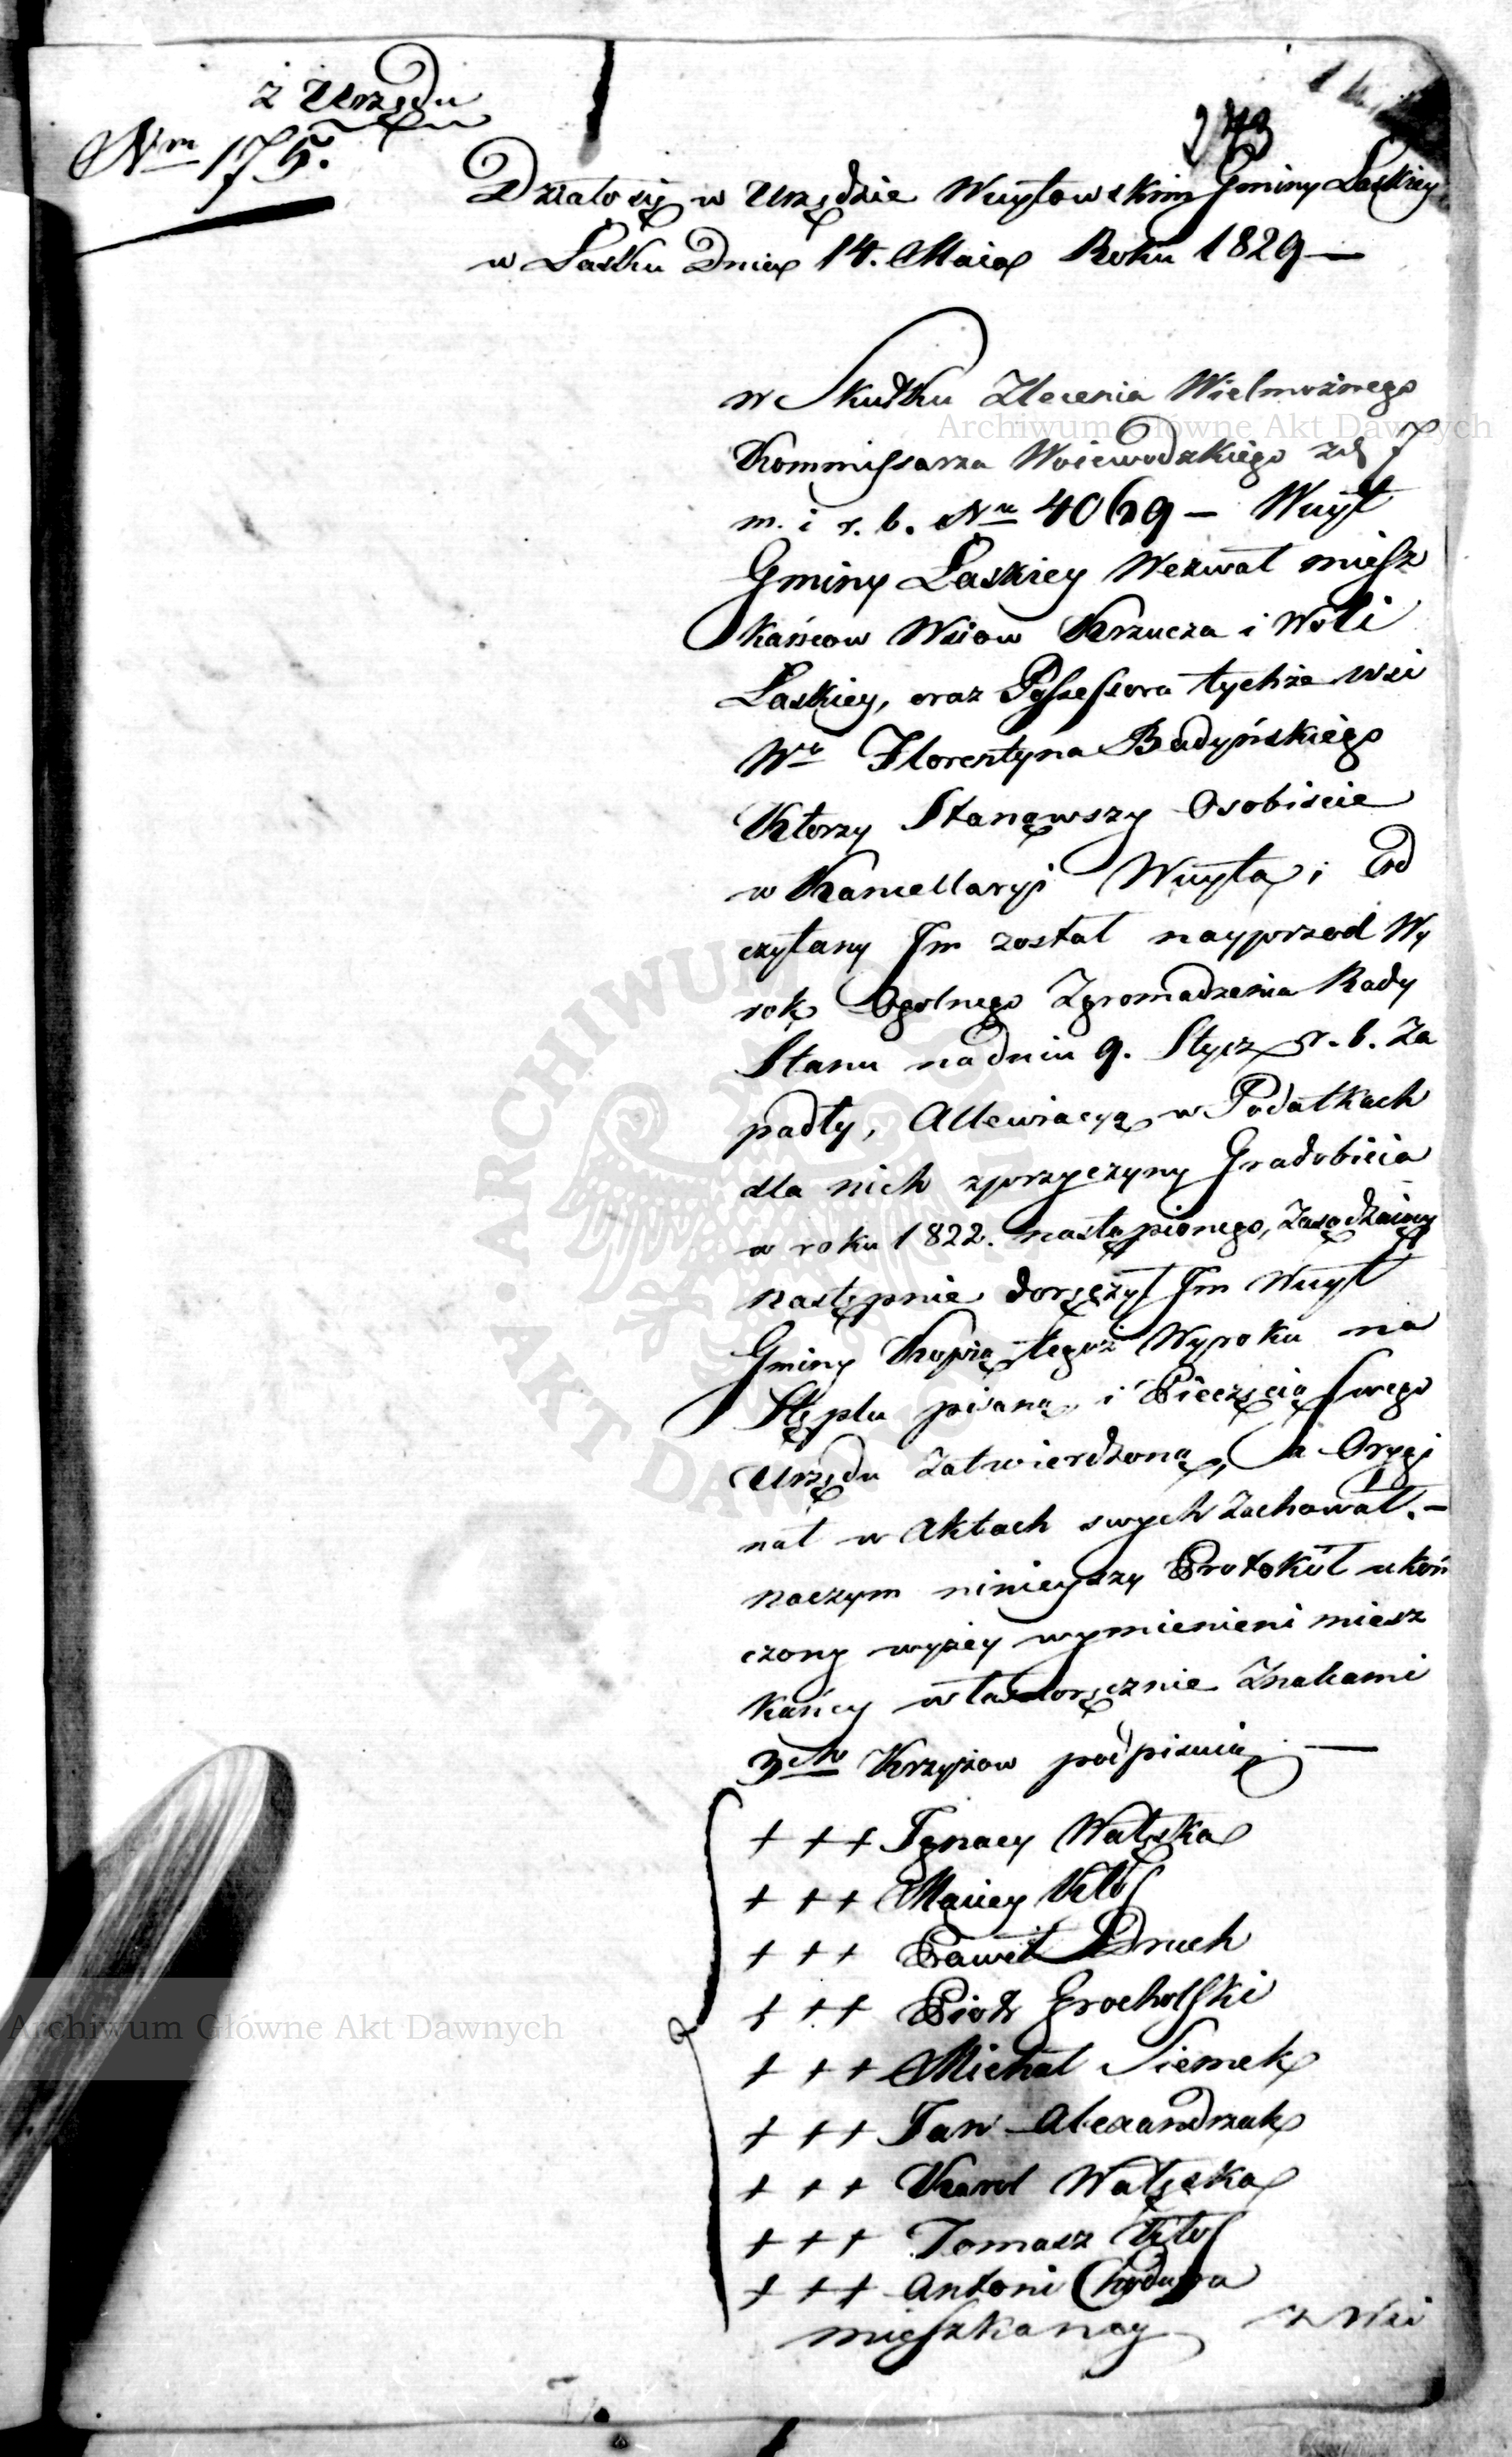 z Urzędu
Nm 175.
273
Działo się w Urzędzie Wuytowskim Gminy Laskiey
w Lasku Dnia 14. Maia Roku 1829 —
w Skutku Zlecenia Wielmożnego
Kommissarza Woiewodzkiego z d. 7
m. i r. b. Nu 4069 — Wuyt
Gminy Laskiey Wezwał miesz
kańcow Wsiow Krzucza i Woli
Laskiey, oraz Possessora tychże wsi
Wo Florentyna Badyńskiego
Ktorzy Stanąwszy Osobiscie
w Kancellaryi Wuyta, i Od
czytany Im został nayprzod Wy
rok Ogolnego Zgromadzenia Rady
Stanu na dniu 9. Stycz r. b. Za
padły, Allewiacyą w Podatkach
dla nich z przyczyny Gradobicia
w roku 1822. nastąpionego, Zasądzaiący
następnie doręczył Im Wuyt
Gminy Kopią tegoż Wyroku na
Stęplu pisaną i Pieczęcią swego
Urzędu Zatwierdzoną, a Orygi
nał w Aktach swych Zachował. —
Naczym ninieyszy Protokuł ukoń
czony wyżey wymienieni miesz
kańcy własnoręcznie Znakami
3ch Krzyżow podpisuią. —
+ + + Ignacy Wałęska
+ + + Maciey Kłos
+ + + Paweł Druch
+ + + Piotr Grocholski
+ + + Michał Siemek
+ + + Jan Alexandrzak
+ + + Karol Wałęska
+ + + Tomasz Kłos
+ + + Antoni Chodura
mieszkancy z Wsi
Archiwum Główne Akt Dawnych
Archiwum Główne Akt Dawnych